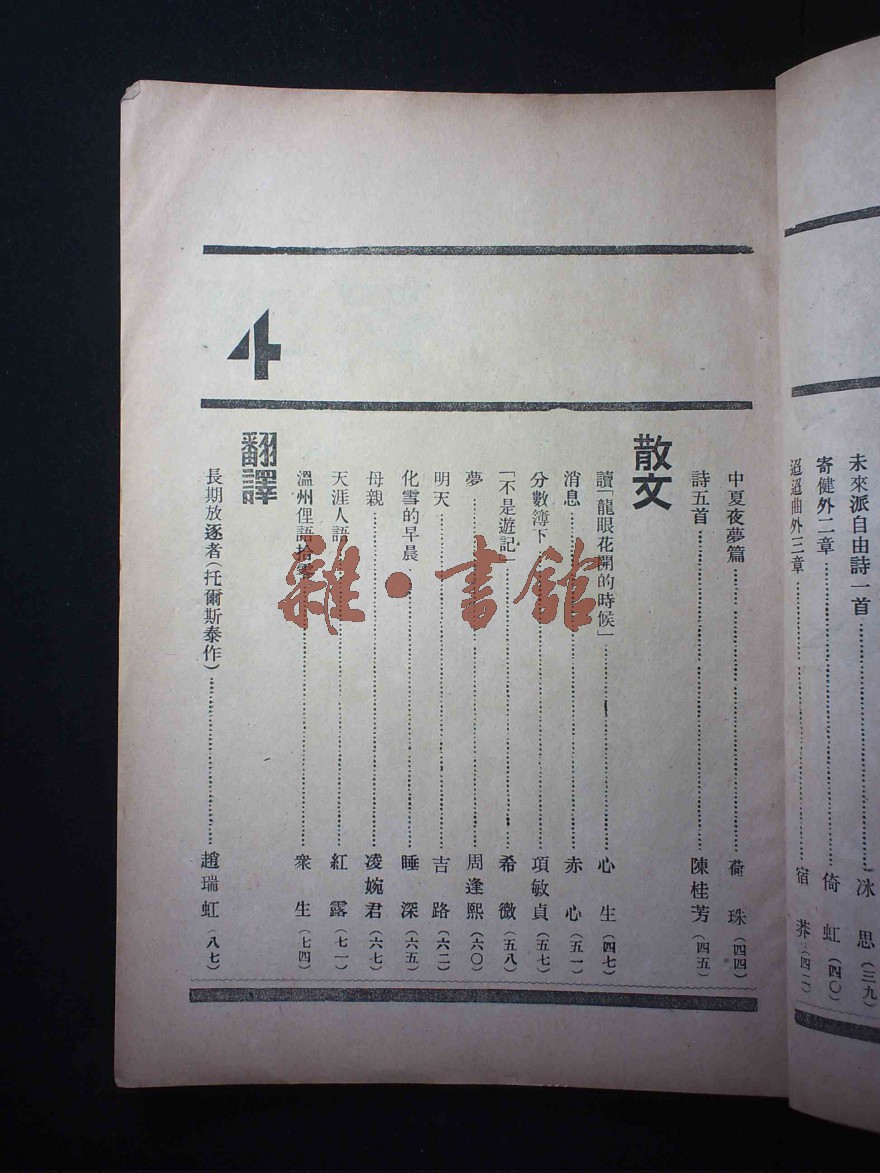 未來派自由詩一首 冰思(三九)
寄健外二章 倚虹(四〇)
迢迢曲外三章 宿莽(四二)
4
中夏夜夢篇 荷珠(四四)
詩五首 陳桂芳(四五)
散文
讀「龍眼花開的時候」 心生(四七)
消息 赤心(五一)
分數簿下 項敏貞(五七)
「不是遊記」 希微(五八)
夢 周逢熙(六〇)
明天 吉路(六二)
化雪的早晨 睡深(六五)
母親 凌婉君(六七)
天涯人語 紅露(七一)
溫州俚語拾零 衆生(七四)
翻譯
長期放逐者(托爾斯泰作) 趙瑞虹(八七)
雜·書館